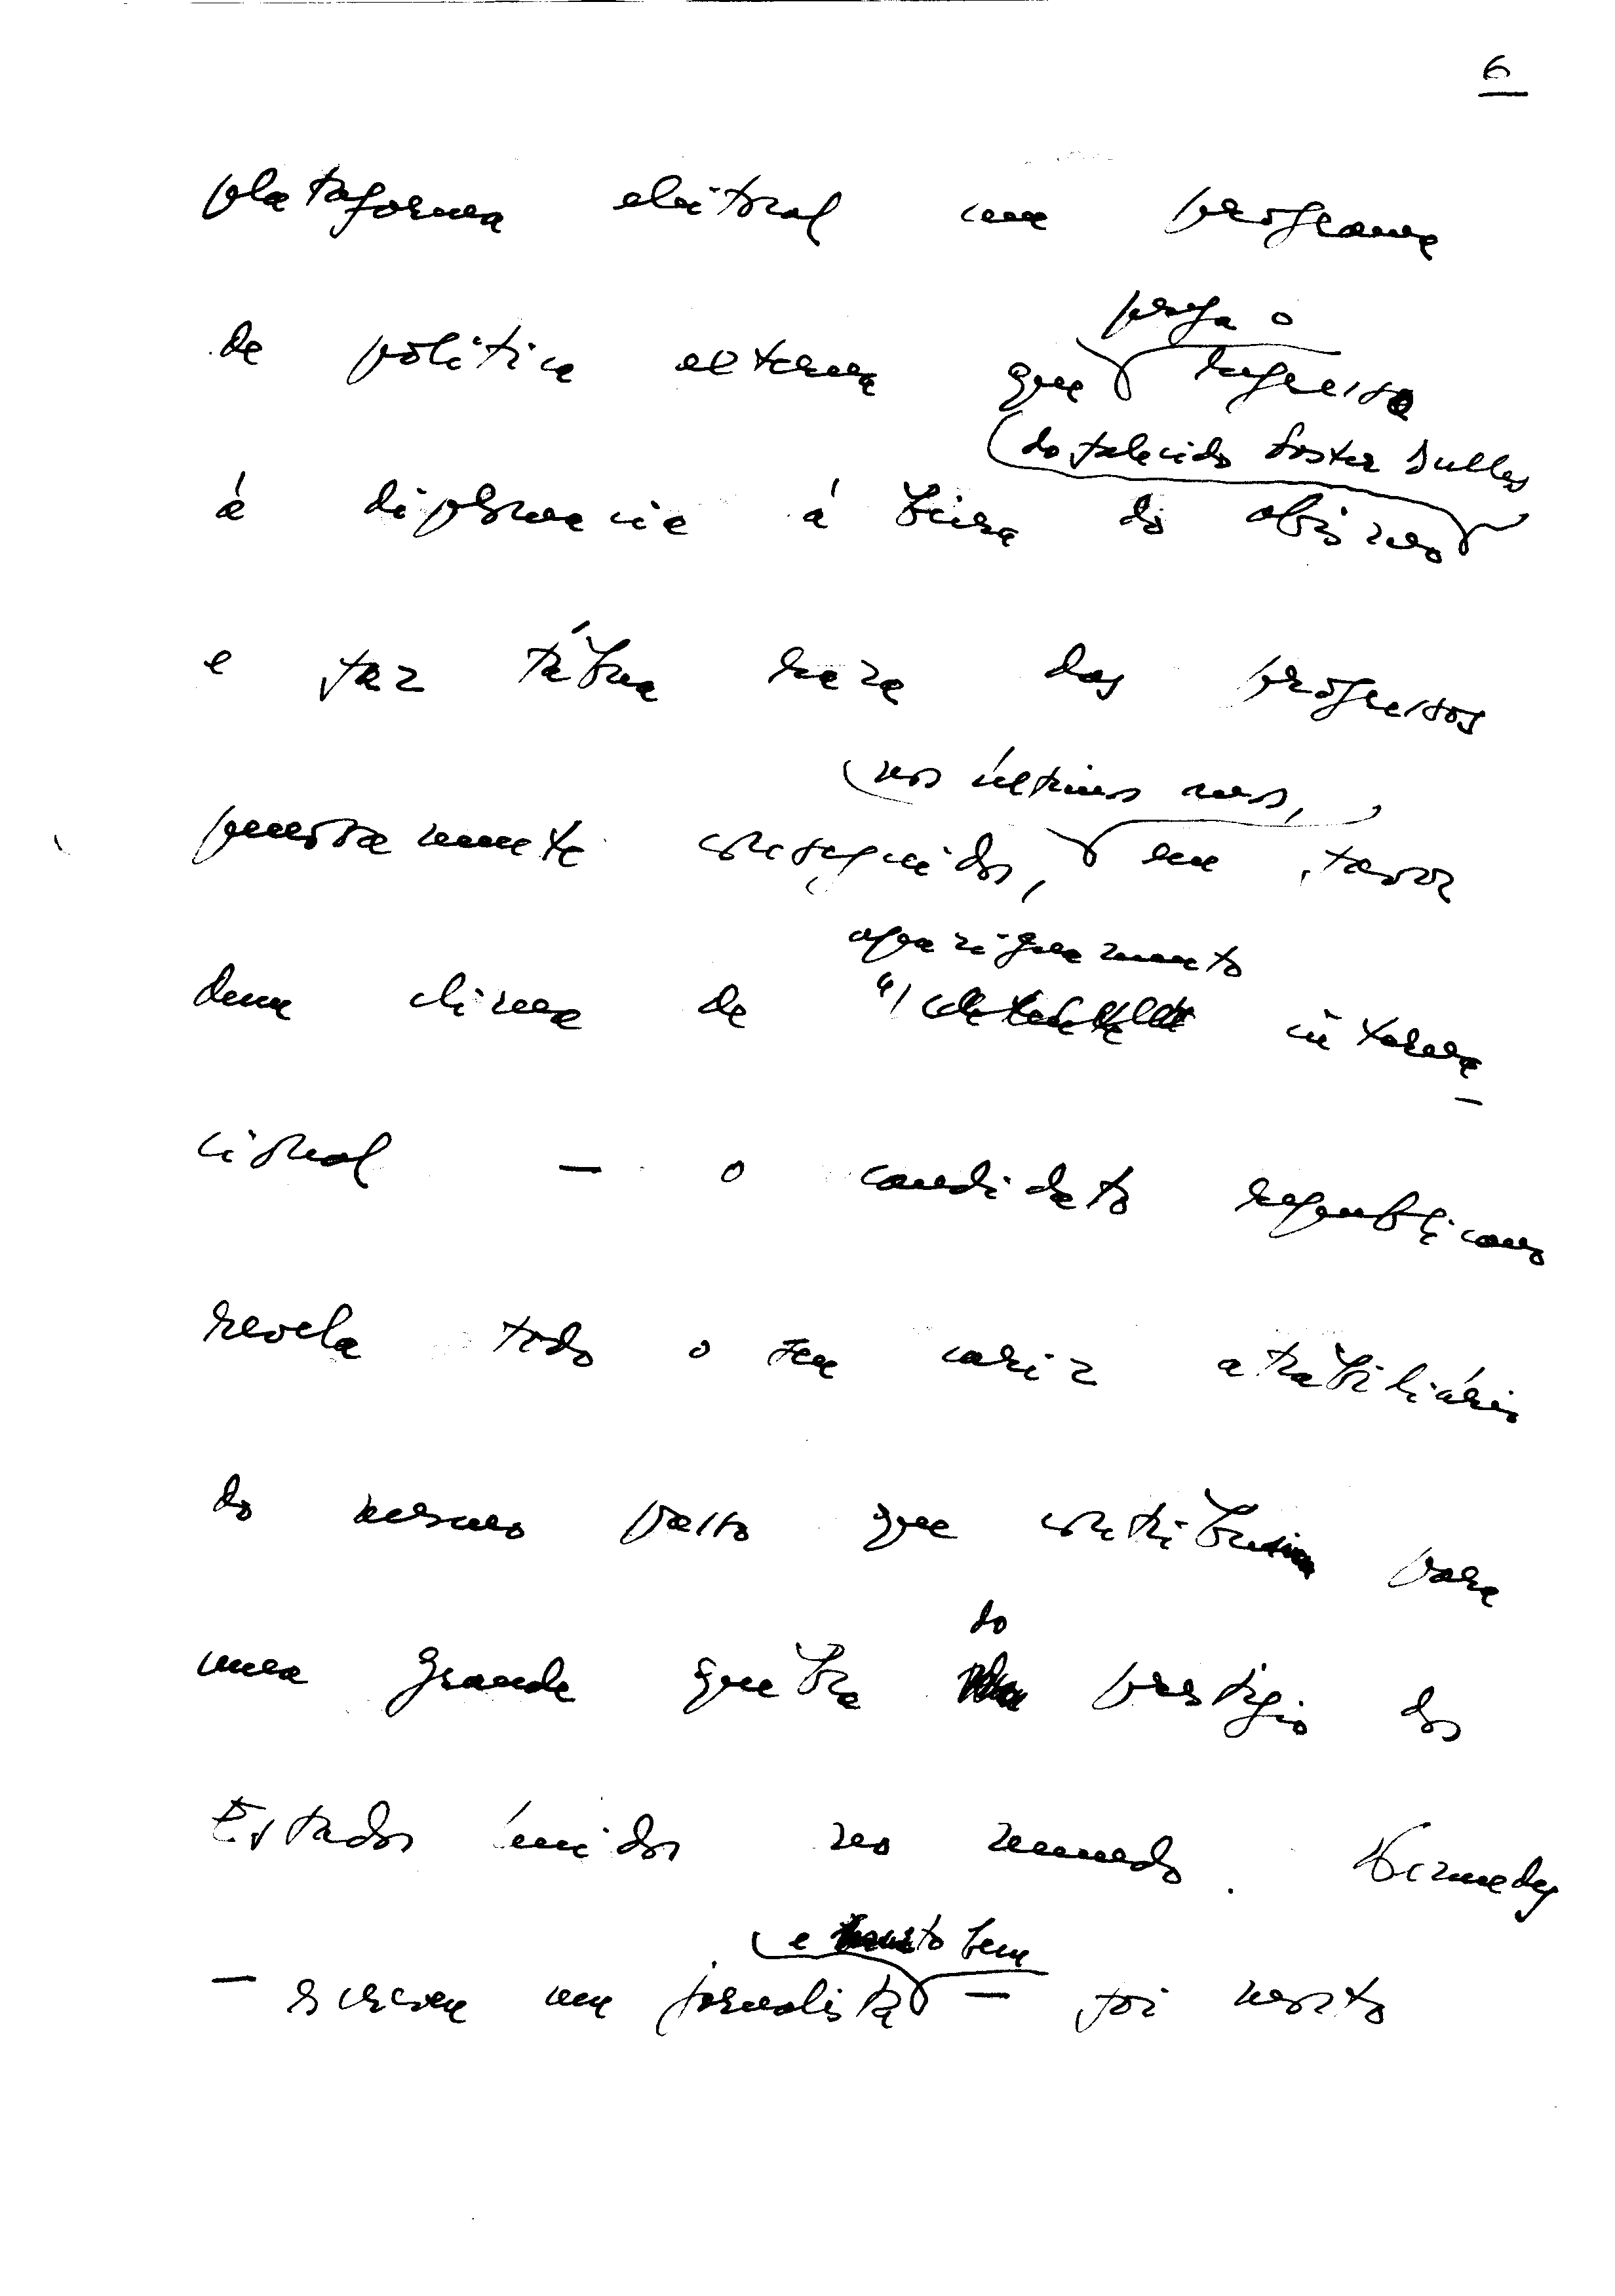 6
plataforma eleitoral um programa
prega o
de política externa que regresso
do falecido Foster Dulles
á diplomacia á beira do abismo
e faz tábua raza dos progressos
nos últimos anos,
penosamente conseguidos, em favor
apaziguamento
dum clima de interna-
cional — o candidato republicano
revela todo o seu cariz atrabiliário
do mesmo passo que contribui para
do
uma grande quebra prestígio dos
Estados Unidos no mundo. Kennedy
e muito bem
— escreveu um jornalista — foi morto